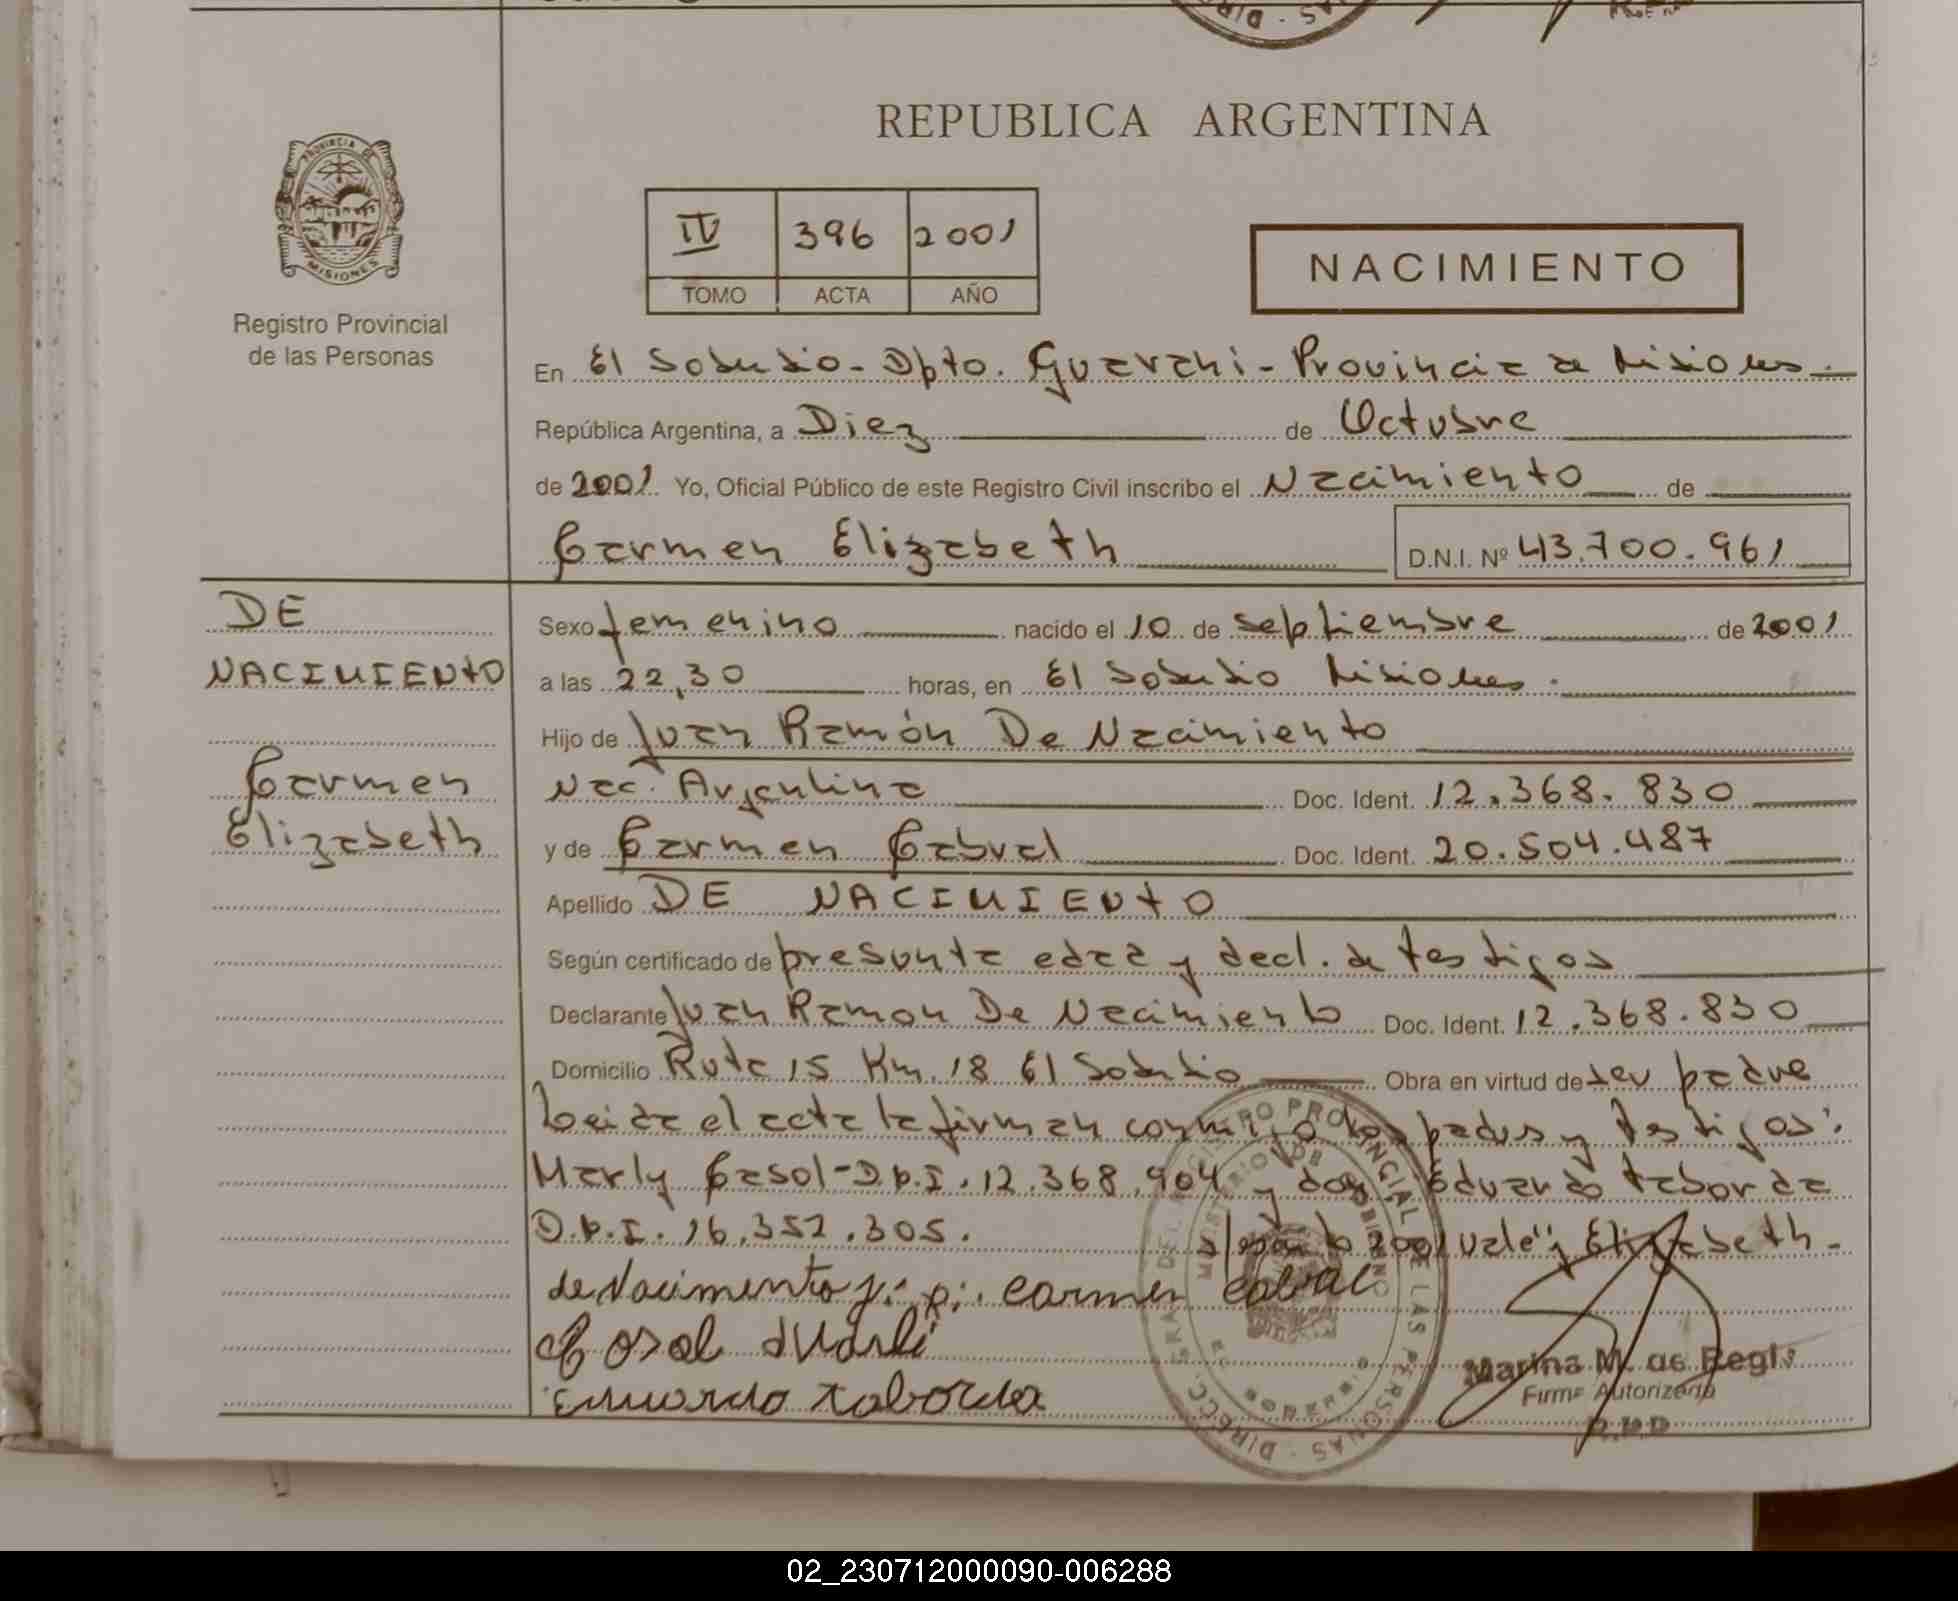 REPUBLICA ARGENTINA
PROVINCIA DE
MISIONES
Registro Provincial
de las Personas
IV 396 2001
TOMO ACTA AÑO
NACIMIENTO
En El Soberbio - Dpto. Guarani - Provincia de Misiones.
República Argentina, a Diez de Octubre
de 2001 Yo, Oficial Público de este Registro Civil inscribo el Nacimiento de
Carmen Elizabeth D.N.I. Nº 43.700.961
DE
NACIMIENTO
Carmen
Elizabeth
Sexo femenino nacido el 10 de septiembre de 2001
a las 22,30 horas, en El Soberbio Misiones.
Hijo de Juan Ramón De Nacimiento
Nac. Argentina Doc. Ident. 12.368.830
y de Carmen Cabral Doc. Ident. 20.504.487
Apellido DE NACIMIENTO
Según certificado de presunta edad y decl. de testigos
Declarante Juan Ramon De Nacimiento Doc. Ident. 12.368.830
Domicilio Ruta 15 Km. 18 El Soberbio Obra en virtud de ser padre
Leida el acta la firman conmigo los padres y testigos:
Marly Casol - D.N.I. 12.368.904 y don Eduardo Taborda
D.N.I. 16.352.305. 2001 vale" y Elizabeth -
de Nacimento J. R. Carmen Cabral
Cosol Marli
Eduardo Taborda
REGISTRO PROVINCIAL DE LAS PERSONAS
MINISTERIO DE GOBIERNO
Marina M. de Regis
Firma Autorizada
02_230712000090-006288